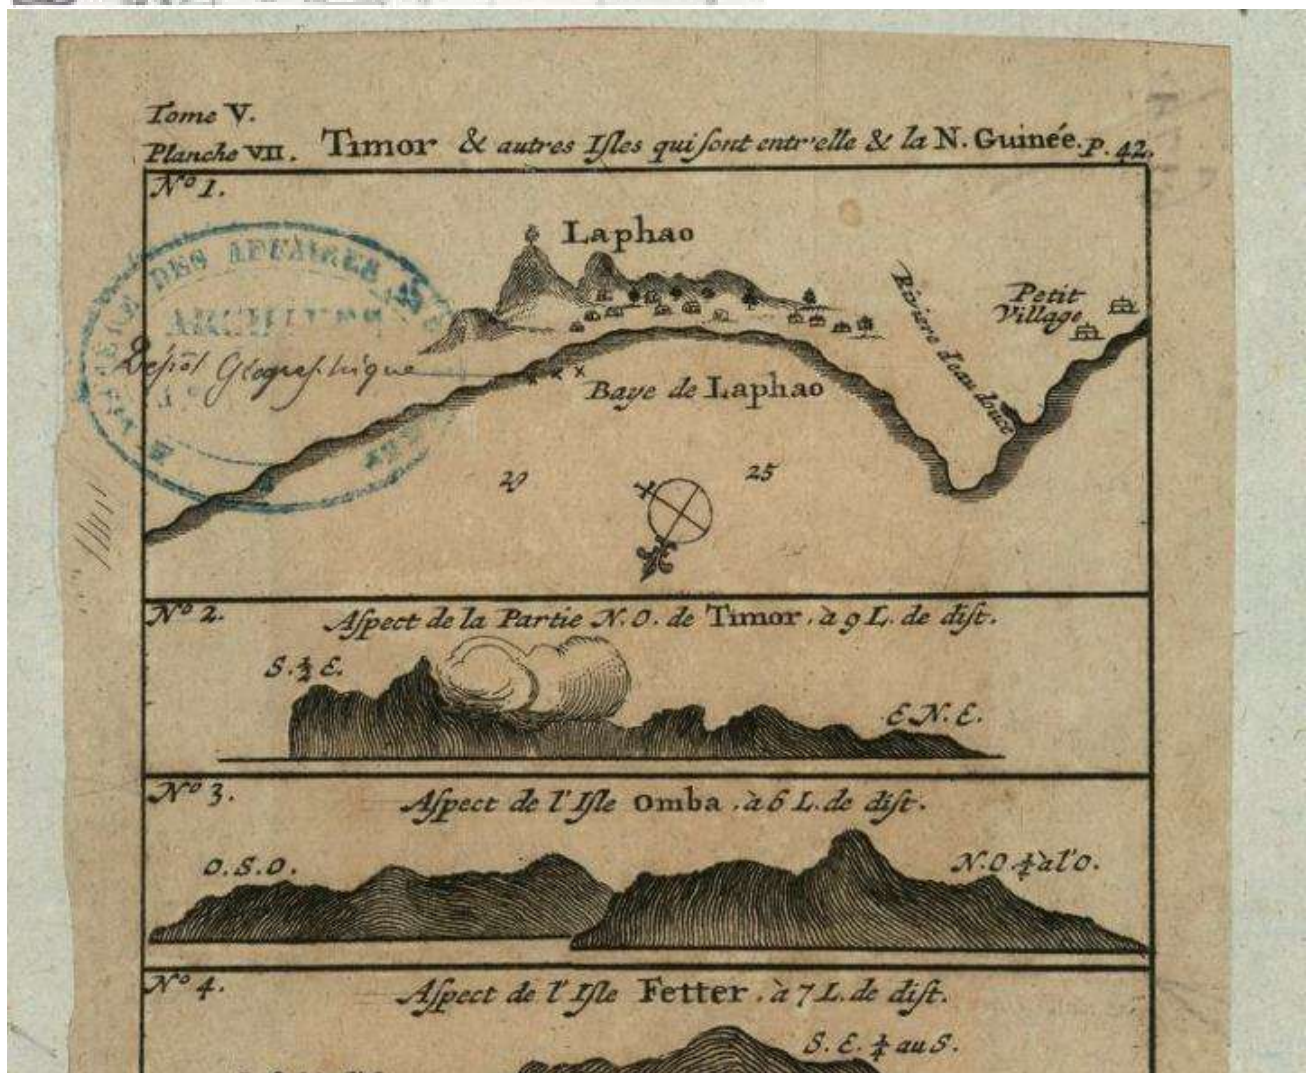 Tome V.
Planche VII. Timor & autres Iſles qui ſont entr'elle & la N. Guinée. P. 42.
Nº 1.
Laphao
DES AFFAIRES
ARCHIVES
Dépôt Géographique
Riviere d'eau douce
Petit
Village
Baye de Laphao
29 25
Nº 2. Aſpect de la Partie N.O. de Timor, à 9 L. de diſt.
S. ½ E.
E N. E.
Nº 3. Aſpect de l'Iſle Omba, à 6 L. de diſt.
O. S. O. N. O. ¼ à l'O.
Nº 4. Aſpect de l'Iſle Fetter, à 7 L. de diſt.
S. E. ¼ au S.